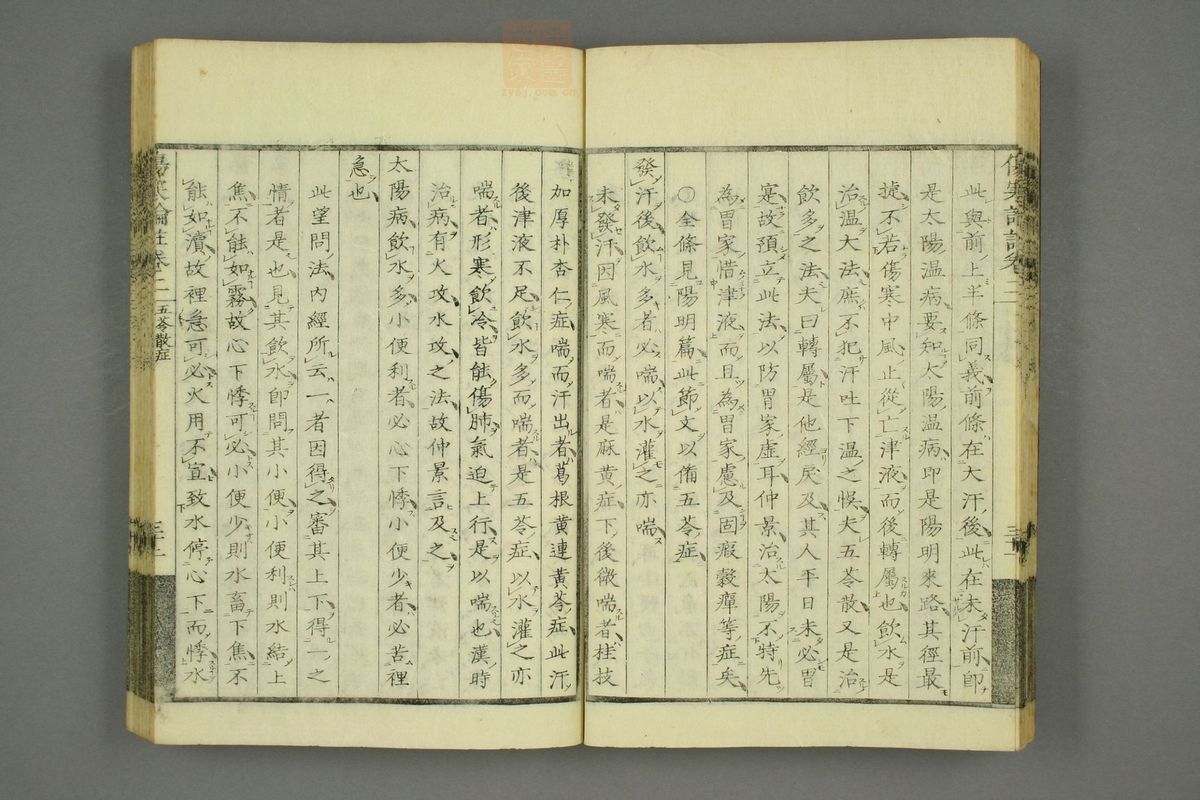 此與前上半條同義前條在大汗後此在未汗前即
是太陽温病要知太陽温病即是陽明來路其徑最
捷不若傷寒中風止從亡津液而後轉屬也飲水是
治温大法庶不犯汗吐下温之悞夫五苓散又是治
飲多之法夫曰轉屬是他經戾及其人平日未必胃
寔故預立此法以防胃家虛耳仲景治太陽不特先
為胃家惜津液而且為胃家慮及固瘕穀癉等症矣
○全條見陽明篇此節文以俻五苓症
發汗後飲水多者必喘以水灌之亦喘
未發汗因風寒而喘者是麻黄症下後微喘者桂技
加厚朴杏仁症喘而汗出者葛根黄連黄芩症此汗
後津液不足飲水多而喘者是五苓症以水灌之亦
喘者形寒飲冷皆能傷肺氣迫上行是以喘也漢時
治病有火攻水攻之法故仲景言及之
太陽病飲水多小便利者必心下悸小便少者必苦裡
急也
此望問法内經所云一者因得之審其上下得一之
情者是也見其飲水即問其小便小便利則水結上
焦不能如霧故心下悸可必小便少則水畜下焦不
能如瀆故裡急可必火用不宣致水停心下而悸水
傷寒論註卷二 五苓散症
三十二